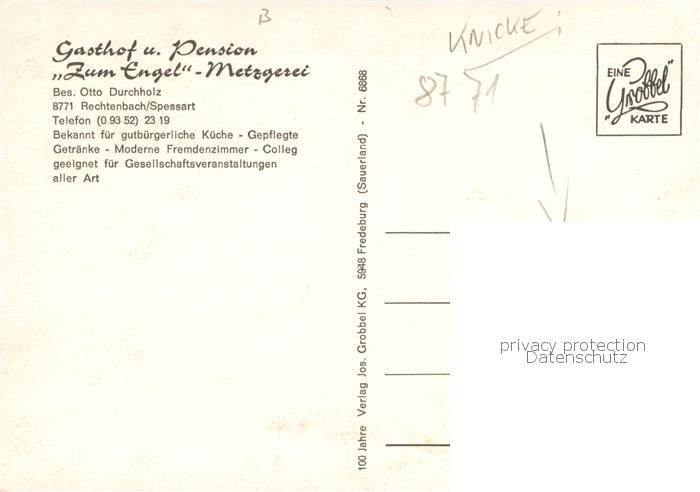 B
Gasthof u. Pension
„Zum Engel“ - Metzgerei
Bes. Otto Durchholz
8771 Rechtenbach/Spessart
Telefon (0 93 52) 23 19
Bekannt für gutbürgerliche Küche - Gepflegte
Getränke - Moderne Fremdenzimmer - Colleg
geeignet für Gesellschaftsveranstaltungen
aller Art
100 Jahre Verlag Jos. Grobbel KG, 5948 Fredeburg (Sauerland) - Nr. 6868
KNICKE!
8771
EINE
„Grobbel“
KARTE
privacy protection
Datenschutz